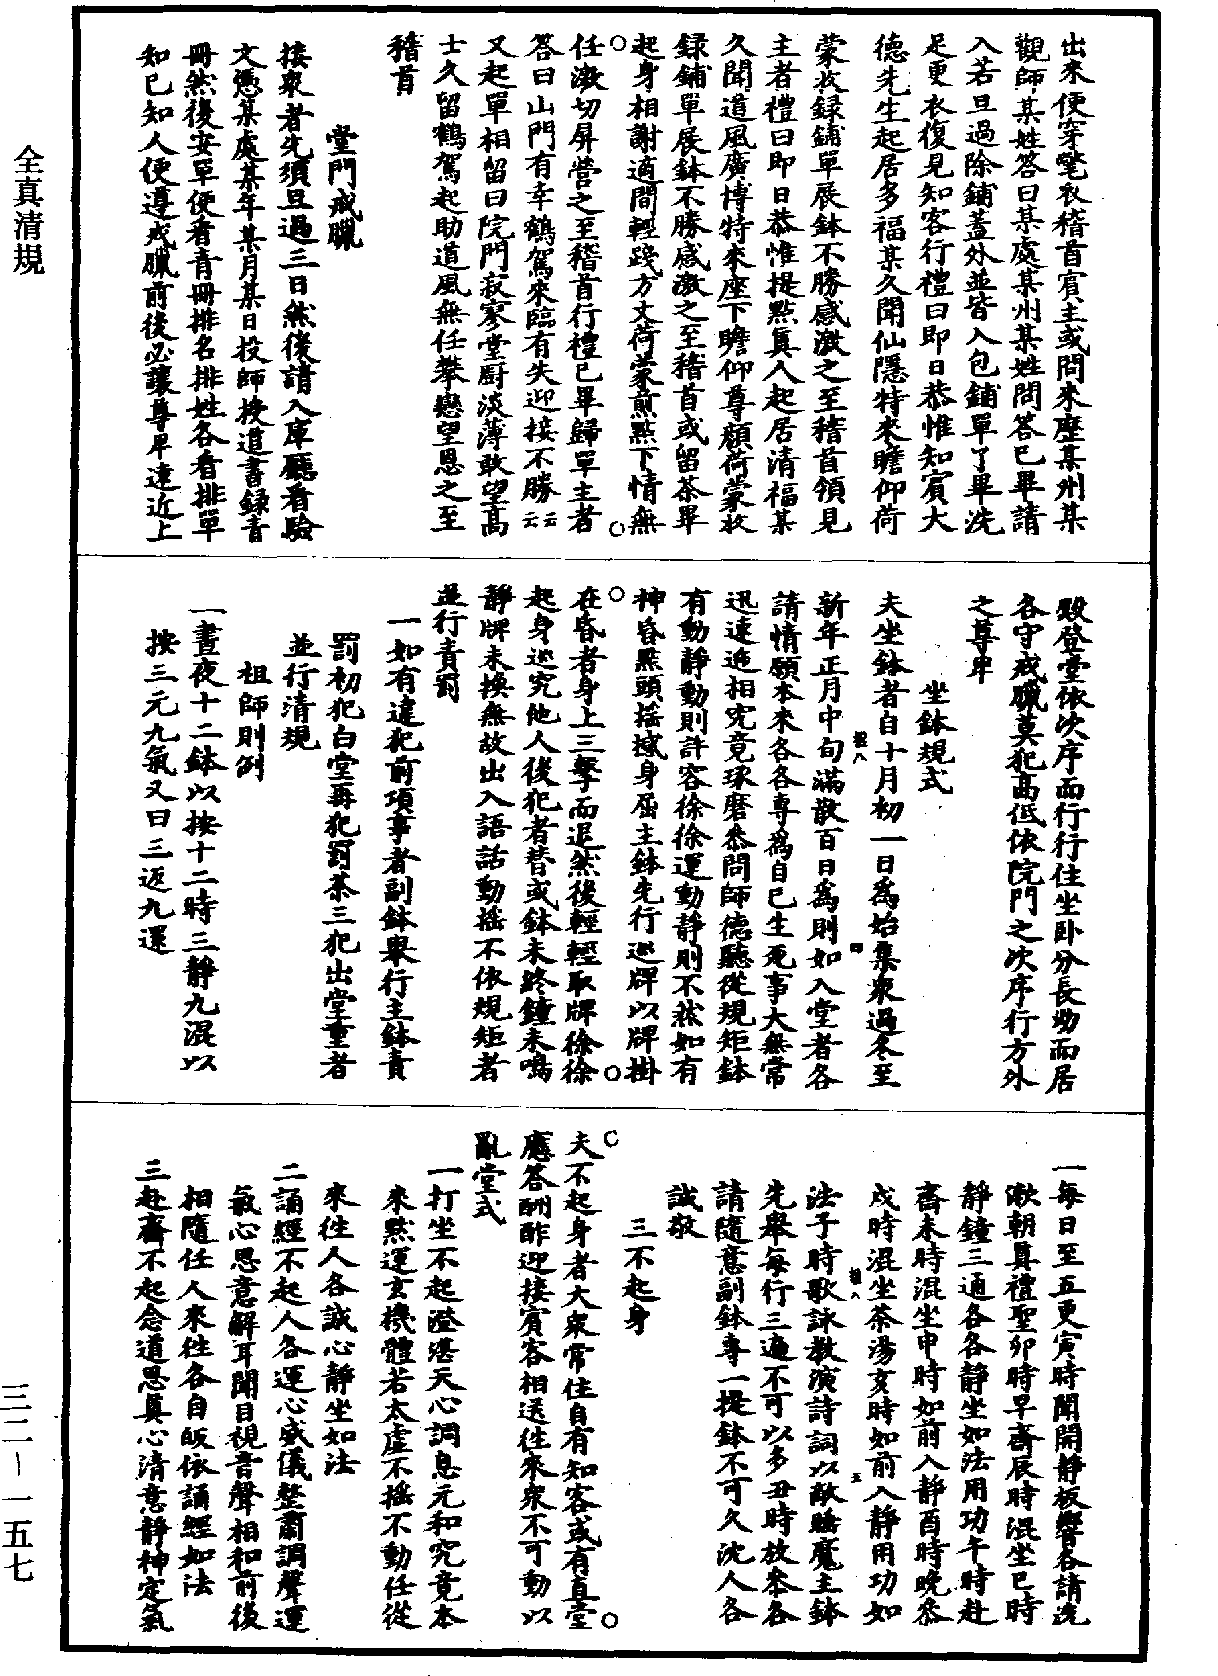 全真清規
出來便穿氅衣稽首賓主或問來歷某州某
觀師某姓答曰某處某州某姓問答已畢請
入若旦過除鋪蓋外並皆入包鋪單了畢洗
足更衣復見知客行禮曰即日恭惟知賓大
德先生起居多福某久聞仙隱特來瞻仰荷
蒙收録鋪單展鉢不勝感激之至稽首領見
主者禮曰即日恭惟提點真人起居清福某
久聞道風廣博特來座下瞻仰尊顏荷蒙收
録鋪單展鉢不勝感激之至稽首或留茶畢
起身相謝適間輕踐方丈荷蒙煎點下情無
任激切屏營之至稽首行禮已畢歸單主者
答曰山門有幸鶴駕來臨有失迎接不勝云云
又起單相留曰院門寂寥堂厨淡薄敢望高
士久留鶴駕起助道風無任攀戀望恩之至
稽首
堂門戒臘
接衆者先須旦過三日然後請入庫廳看驗
文憑某處某年某月某日投師授道書録青
冊然後安單便看青冊排名排姓各看排單
知已知人便遵戒臘前後必讓尊卑遠近上
殿登堂依次序而行行住坐卧分長幼而居
各守戒臘莫犯高低依院門之次序行方外
之尊卑
坐鉢規式
夫坐鉢者自十月初一日爲始集衆過冬至
新年正月中旬滿散百日爲則如入堂者各
請情願本來各各專爲自己生死事大無常
迅速逓相究竟琢磨叅問師德聽從規矩鉢
有動靜動則許容徐徐運動靜則不然如有
神昏點頭摇撼身屈主鉢先行巡牌以牌掛
在昏者身上三擊而退然後輕輕取牌徐徐
起身巡究他人後犯者替或鉢未終鐘未鳴
靜牌未換無故出入語話動摇不依規矩者
並行責罰
一如有違犯前項事者副鉢舉行主鉢責
罰初犯白堂再犯罰茶三犯出堂重者
並行清規
祖師則例
一晝夜十二鉢以按十二時三靜九混以
按三元九氣又曰三返九還
一每日至五更寅時聞開靜板響各請洗
漱朝真禮聖卯時早齋辰時混坐巳時
靜鐘三通各各靜坐如法用功午時赴
齋未時混坐申時如前入靜酉時晚叅
戌時混坐茶湯亥時如前入靜用功如
法子時歌詠教演詩詞以敵睡魔主鉢
先舉每行三遍不可以多丑時放叅各
請隨意副鉢專一提鉢不可久沈人各
誠敬
三不起身
夫不起身者大衆常住自有知客或有直堂
應答酬酢迎接賓客相送往來衆不可動以
亂堂式
一打坐不起澄湛天心調息元和究竟本
來默運玄機體若太虛不摇不動任從
來往人各誠心靜坐如法
二誦經不起人各運心威儀整肅調聲運
氣心思意解耳聞目視音聲相和前後
相隨任人來往各自皈依誦經如法
三赴齋不起念道思真心清意靜神定氣
三二－一五七